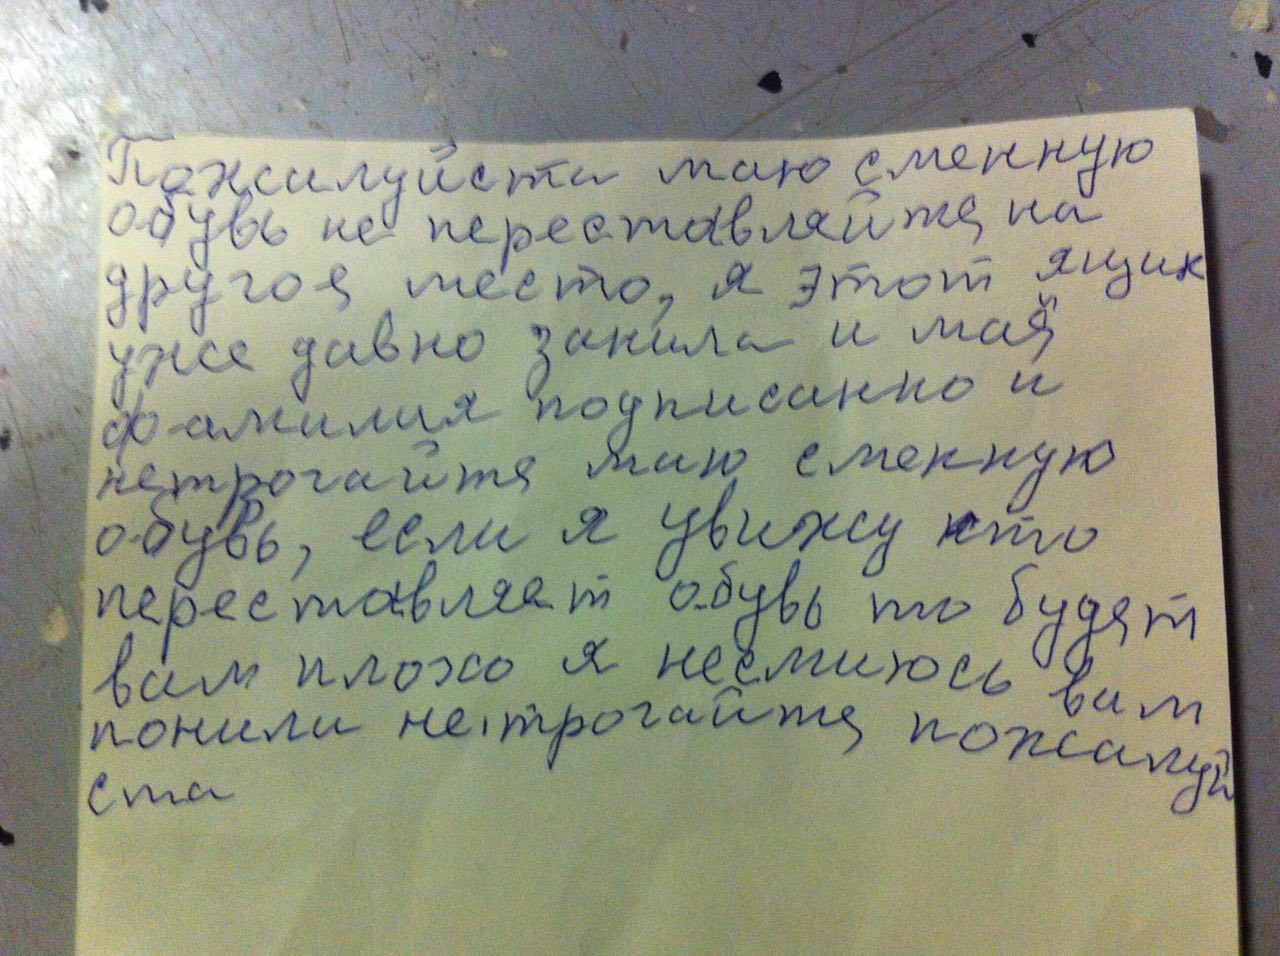 Пожалуйста маю сменную
обувь не переставляйтя на
другоя место, я этот ящик
уже давно занила и мая
фамилия подписанно и
нетрогайтя маю сменную
обувь, если я увижу кто
переставляят обувь то будят
вам плохо я несмиюсь вам
понили нетрогайтя пожалуй
ста